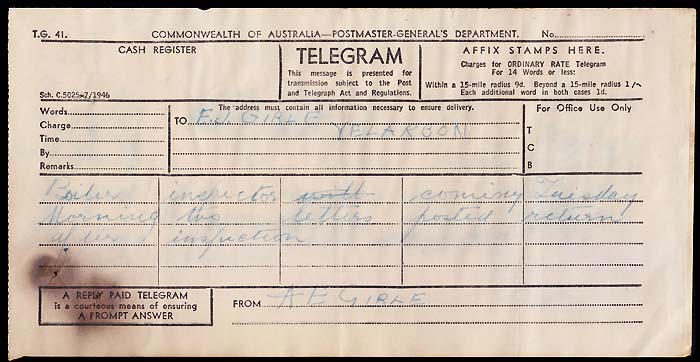 T.G. 41. COMMONWEALTH OF AUSTRALIA—POSTMASTER-GENERAL'S DEPARTMENT. No.
CASH REGISTER
Sch. C.5025—7/1946
TELEGRAM
This message is presented for
transmission subject to the Post
and Telegraph Act and Regulations.
AFFIX STAMPS HERE.
Charges for ORDINARY RATE Telegram
For 14 Words or less:
Within a 15-mile radius 9d. Beyond a 15-mile radius 1/-
Each additional word in both cases 1d.
Words
Charge
Time
By
Remarks
The address must contain all information necessary to ensure delivery.
TO E.J. GIRLE
YELARBON
For Office Use Only
T
C
B
Boiler inspector will coming Tuesday
Morning two letters posted return
after inspection
A REPLY PAID TELEGRAM
is a courteous means of ensuring
A PROMPT ANSWER
FROM A E GIRLE